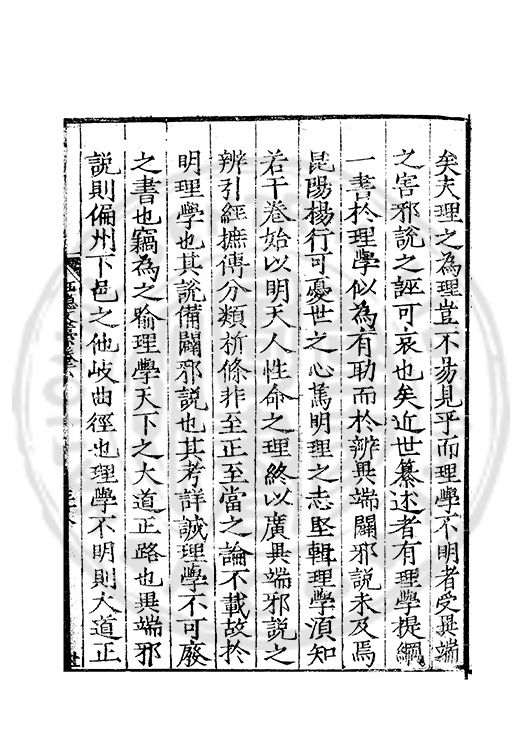 矣夫理之為理豈不易見乎而理學不明者受異端
之害邪說之誣可哀也矣近世纂述者有理學提綱
一書於理學似為有助而於辨異端闢邪說未及焉
昆陽楊行可憂世之心篤明理之志堅輯理學須知
若干卷始以明天人性命之理終以廣異端邪說之
辨引經摭傳分類析條非至正至當之論不載故於
明理學也其說備闢邪說也其考詳誠理學不可廢
之書也竊為之喻理學天下之大道正路也異端邪
說則偏州下邑之他岐曲徑也理學不明則大道正